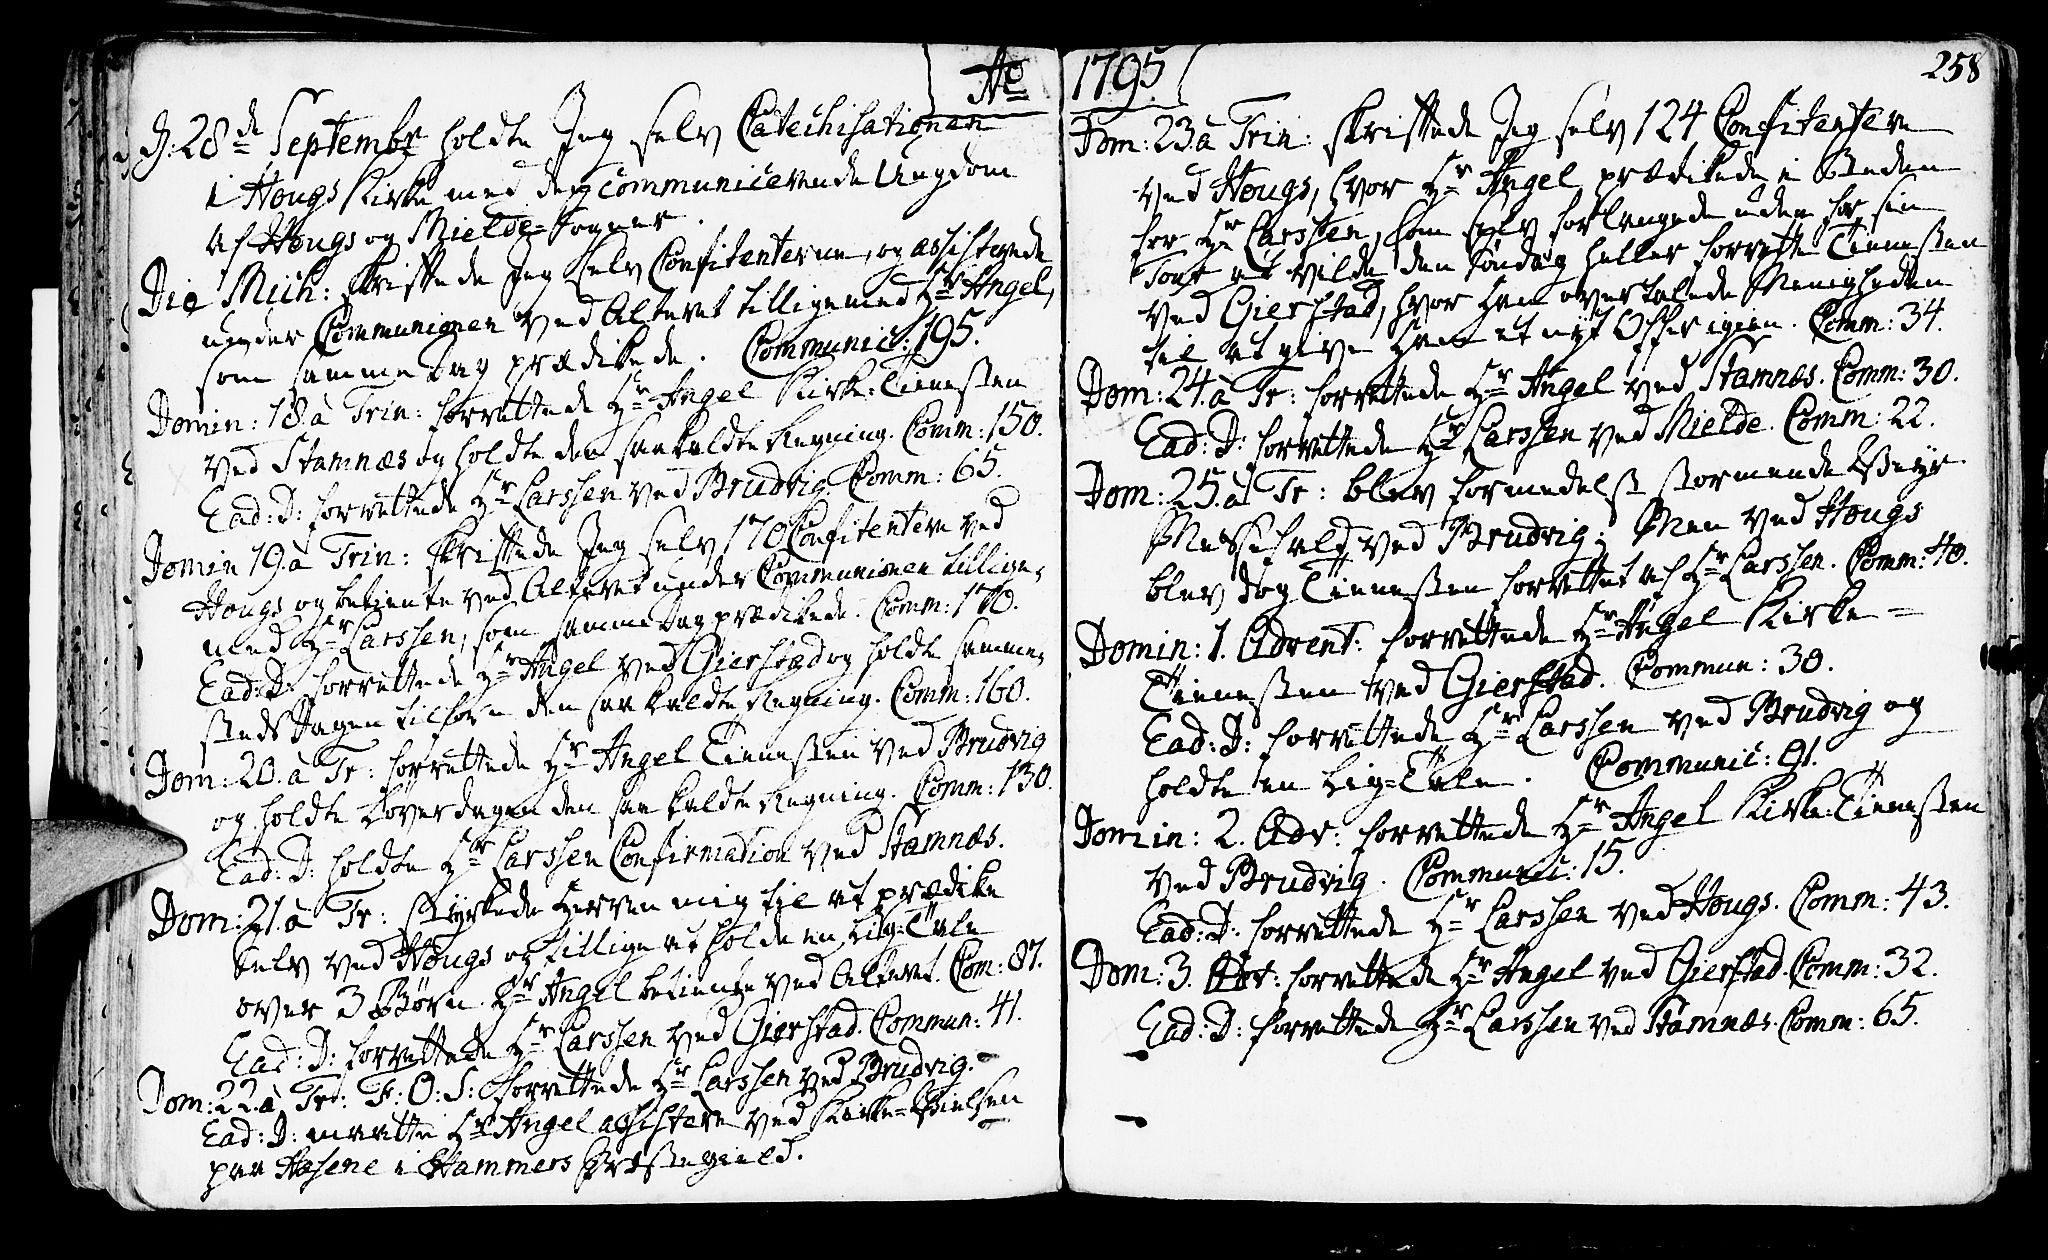 Ao 1795
258
d: 28de Septembr holdte Jeg selv Catechisationen
i Hougs Kirke med den communicerende Ungdom
af Hougs og Mielde-Sogner.
Die Mich: skriftede Jeg selv Confitenterne, og assisterede
under Communionen ved Alteret tilligemed Hr Angel,
som samme Dag prædikede. Communic: 195.
Domin: 18. à Trin: forrettede Hr Angel Kirke-Tienesten
ved Stamnæs og holdte den saakaldte Regning. Comm: 150.
Ead: D: forrettede Hr Larssen ved Brudvig. Comm: 65.
Domin 19. à Trin: skriftede Jeg selv 170 Confitentere ved
Hougs og betiente ved Alteret under Communionen tillige-
med Hr Larssen, som samme Dag prædikede. Comm: 170.
Ead: D: forrettede Hr Angel ved Gierstad og holdte samme-
steds Dagen tilforn den saakaldte Regning. Comm: 160.
Dom: 20. à Tr: forrettede Hr Angel Tienesten ved Brudvig
og holdte Løverdagen den saakaldte Regning. Comm: 130.
Ead: D: holdte Hr Larssen Confirmation ved Stamnæs.
Dom: 21. à Tr: styrkede Herren mig til at prædike
selv ved Hougs og tillige at holde en Lig-Tale
over 3 Børn. Hr Angel betiente ved Alteret. Com: 87.
Ead: D: forrettede Hr Larssen ved Gierstad. Commun: 41.
Dom: 22. à Tr: F: O: S: forrettede Hr Larssen ved Brudvig.
Ead: D: maatte Hr Angel assistere ved Kirke-Vielsen
paa Hasene i Hammers Præstegield.
Dom: 23. à Trin: skriftede Jeg selv 124 Confitentere
ved Hougs, hvor Hr Angel prædikede i Steden
for Hr Larssen, som selv forlangede uden for sin
Tour at vilde den Søndag heller forrette Tienesten
ved Gierstad, hvor han overtalede Menigheden
til at give ham et nyt Offer igien. Comm: 34.
Dom: 24. à Tr: forrettede Hr Angel ved Stamnæs. Comm: 30.
Ead: D: forrettede Hr Larssen ved Mielde. Comm: 22.
Dom: 25. à Tr: blev formedelst stormende Veyr
Messefald ved Brudvig; Men ved Hougs
blev dog Tienesten forrettet af Hr Larssen. Comm: 40.
Domin: 1. Advent: forrettede Hr Angel Kirke-
Tienesten ved Gierstad. Commun: 30.
Ead: D: forrettede Hr Larssen ved Brudvig og
holdte en Lig-Tale. Communic: 91.
Domin: 2. Adv: forrettede Hr Angel Kirke-Tienesten
ved Brudvig. Communic: 15.
Ead: D: forrettede Hr Larssen ved Hougs. Comm: 43.
Dom: 3. Adv: forrettede Hr Angel ved Gierstad. Comm: 32.
Ead: D: forrettede Hr Larssen ved Stamnæs. Comm: 65.